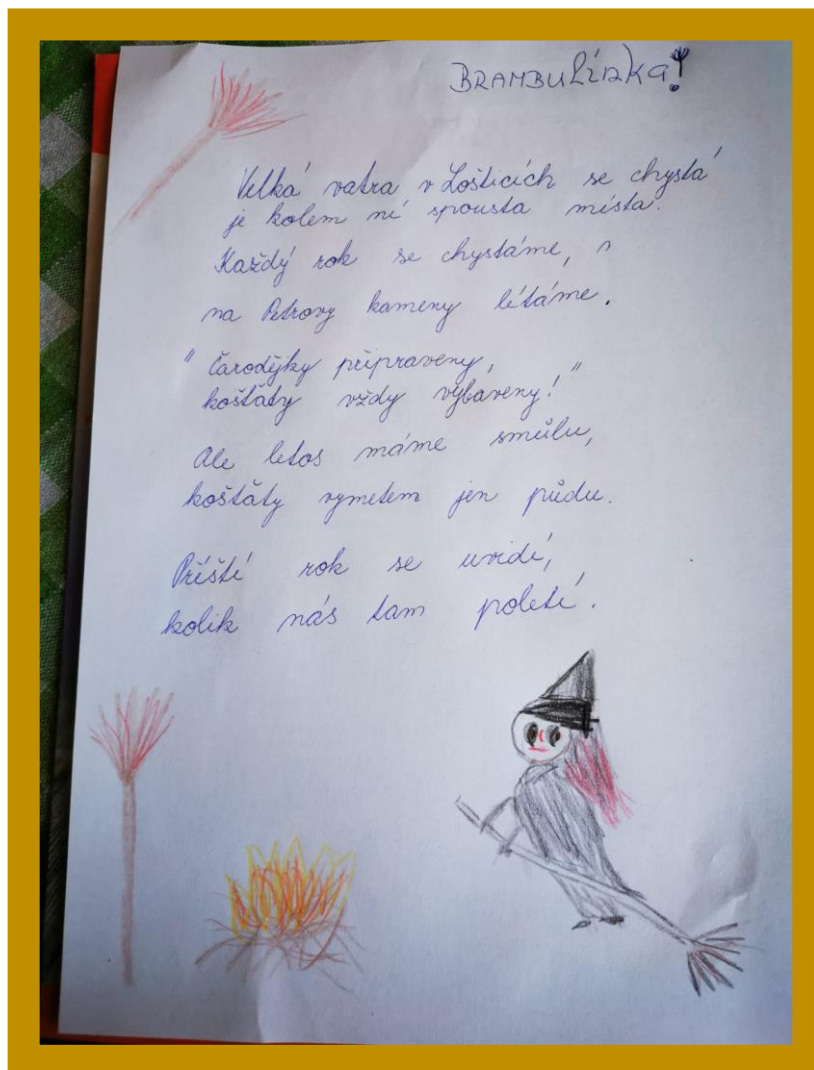 BRAMBULÍNKA!
Velká vatra v Lošticích se chystá
je kolem ní spousta místa.
Každý rok se chystáme,
na Petrovy kameny létáme.
" Čarodějky připraveny,
košťaty vždy vybaveny! "
Ale letos máme smůlu,
košťaty vymetem jen půdu.
Příští rok se uvidí,
kolik nás tam poletí.